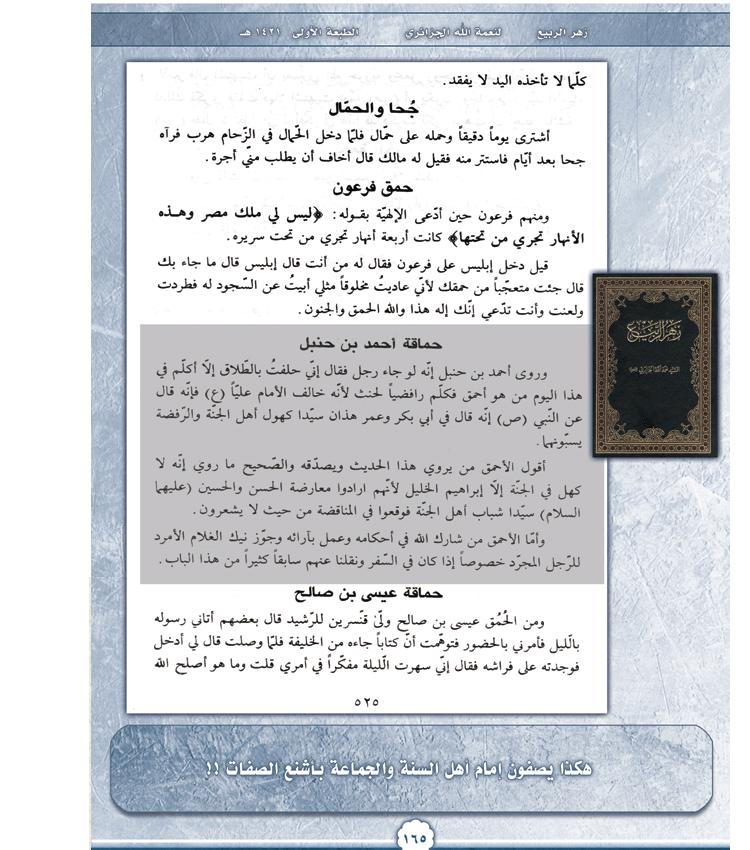 زهر الربيع لنعمة الله الجزائري الطبعة الأولى ١٤٢١ هـ
كلّما لا تأخذه اليد لا يفقد.
جُحا والحمّال
أشترى يوماً دقيقاً وحمله على حمّال فلمّا دخل الحّمال في الزّحام هرب فرآه
جحا بعد أيّام فاستتر منه فقيل له مالك قال أخاف أن يطلب منّي أجرة.
حمق فرعون
ومنهم فرعون حين أدّعى الإلهيّة بقوله: ﴿ليس لي ملك مصر وهذه
الأنهار تجري من تحتها﴾ كانت أربعة أنهار تجري من تحت سريره.
قيل دخل إبليس على فرعون فقال له من أنت قال إبليس قال ما جاء بك
قال جئت متعجّباً من حمقك لأنّي عاديتُ مخلوقاً مثلي أبيتُ عن السّجود له فطردت
ولعنت وأنت تدّعي إنّك إله هذا والله الحمق والجنون.
زهر الربيع
حماقة أحمد بن حنبل
وروى أحمد بن حنبل إنّه لو جاء رجل فقال إنّي حلفتُ بالطّلاق إلّا أكلّم في
هذا اليوم من هو أحمق فكلّم رافضياً لحنث لأنّه خالف الأمام عليّاً (ع) فإنّه قال
عن النّبي (ص) إنّه قال في أبي بكر وعمر هذان سيّدا كهول أهل الجنّة والرّفضة
يسبّونهما.
أقول الأحمق من يروي هذا الحديث ويصدّقه والصّحيح ما روي إنّه لا
كهل في الجنّة إلّا إبراهيم الخليل لأنّهم ارادوا معارضة الحسن والحسين (عليهما
السلام) سيّدا شباب أهل الجنّة فوقعوا في المناقضة من حيث لا يشعرون.
وأمّا الأحمق من شارك الله في أحكامه وعمل بآرائه وجوّز نيك الغلام الأمرد
للرّجل المجرّد خصوصاً إذا كان في السّفر ونقلنا عنهم سابقاً كثيراً من هذا الباب.
حماقة عيسى بن صالح
ومن الحُمُق عيسى بن صالح ولّى قنّسرين للرّشيد قال بعضهم أتاني رسوله
بالّليل فأمرني بالحضور فتوهّمت أنّ كتاباً جاءه من الخليفة فلمّا وصلت قال لي أدخل
فوجدته على فراشه فقال إنّي سهرت الّليلة مفكّراً في أمري قلت وما هو أصلح الله
٥٢٥
هكذا يصفون إمام أهل السنة والجماعة بأشنع الصفات !!
١٦٥